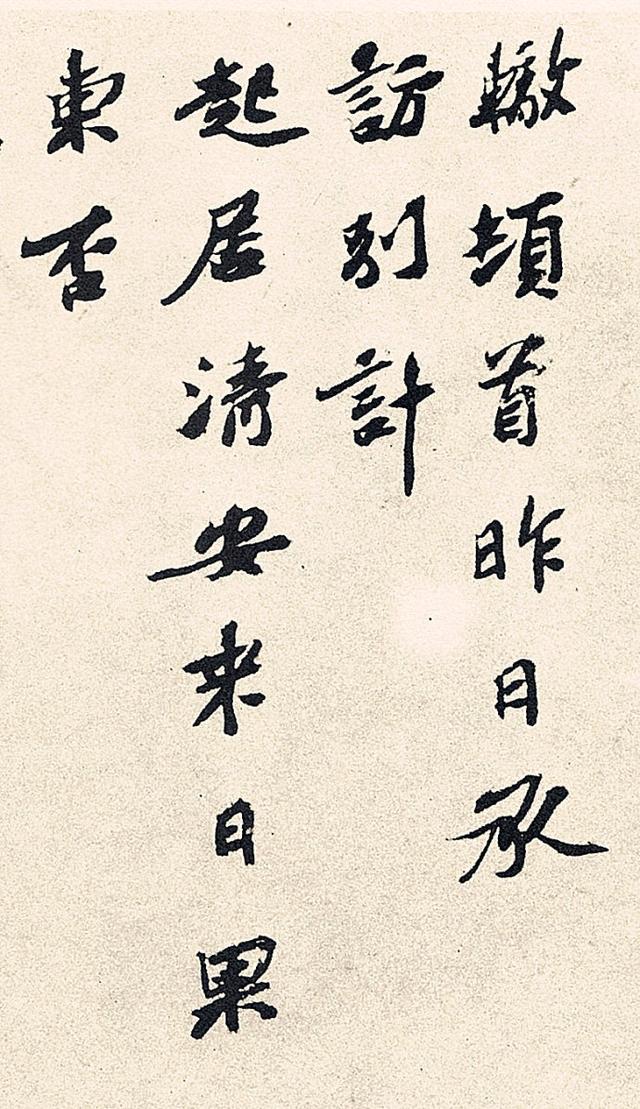 轍頓首昨日承
訪別計
起居清安来日果
東否